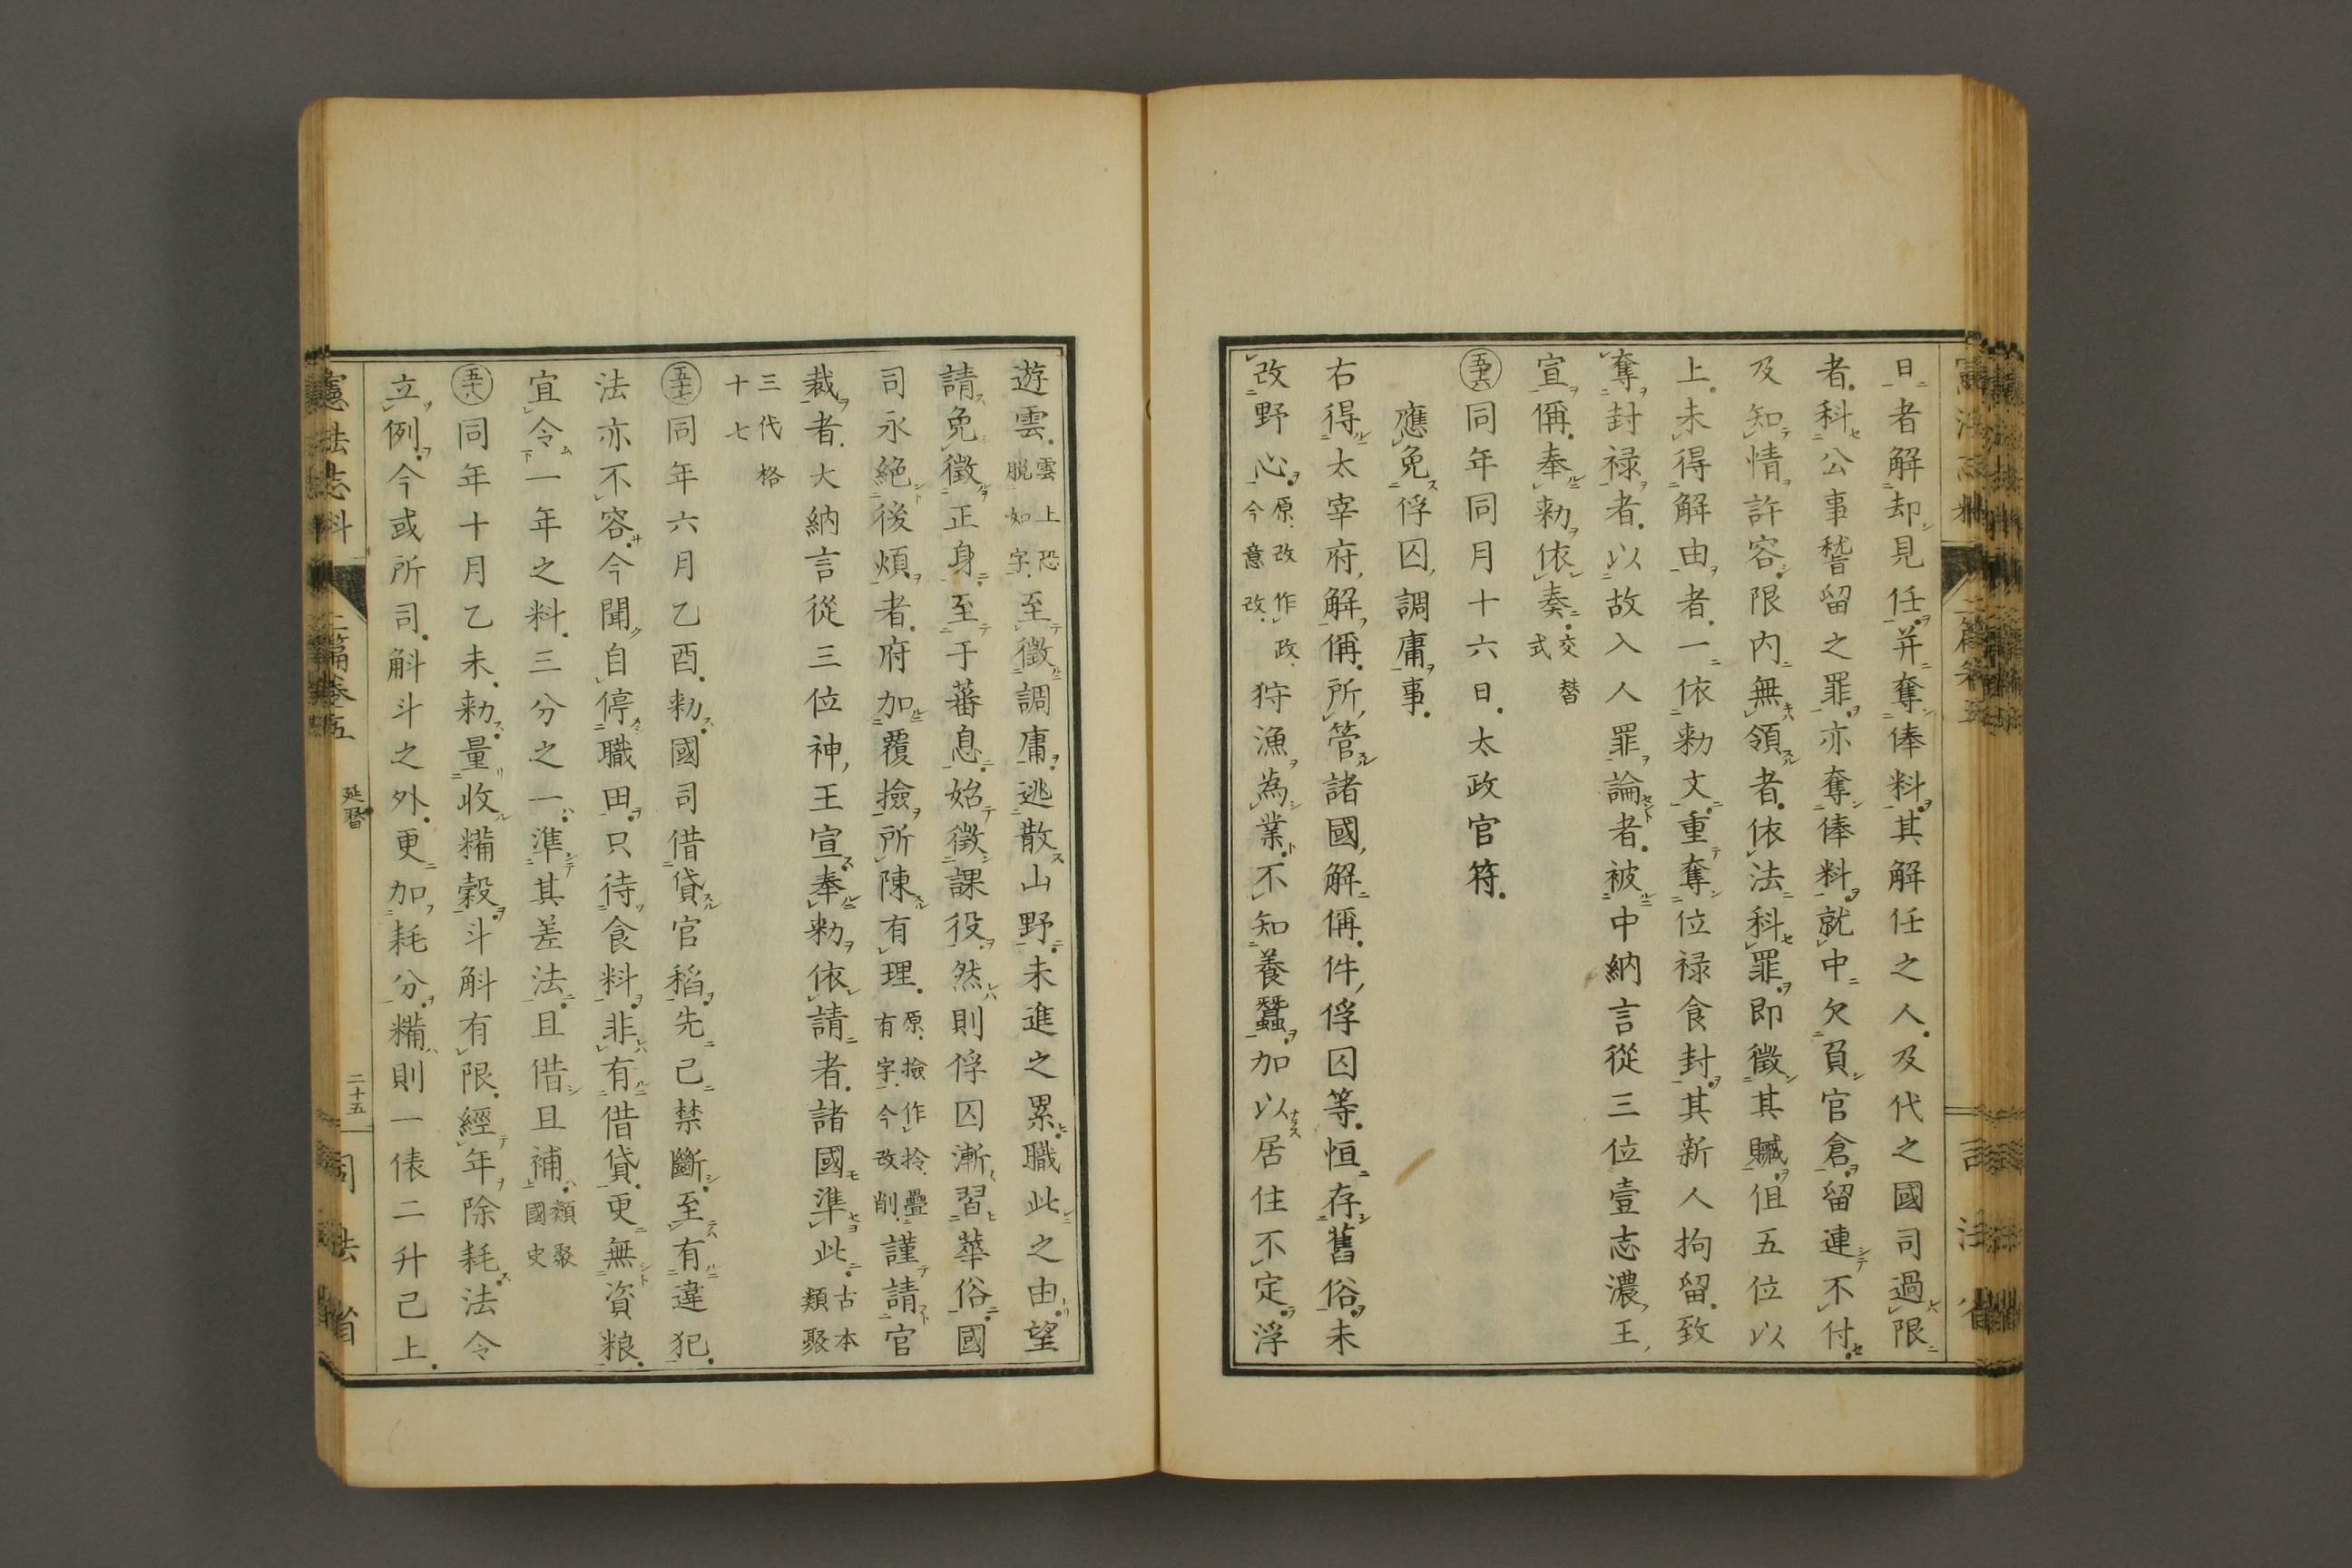 日者解却見任并奪俸料其解任之人及代之國司過限
者科公事稽留之罪亦奪俸料就中欠負官倉留連不付
及知情許容限内無領者依法科罪即徵其贓但五位以
上未得解由者一依勅文重奪位禄食封其新人拘留致
奪封禄者以故入人罪論者被中納言從三位壹志濃王
宣偁奉勅依奏交替式
五十六同年同月十六日太政官符
應免俘囚調庸事
右得太宰府解偁所管諸國解偁件俘囚等恒存舊俗未
改野心原改作政今意改狩漁為業不知養蠶加以居住不定浮
遊雲雲上恐脱如字至徵調庸逃散山野未進之累職此之由望
請免徵正身至于蕃息始徵課役然則俘囚漸習華俗國
司永絕後煩者府加覆撿所陳有理原撿作拎疊有字今改削謹請官
裁者大納言從三位神王宣奉勅依請者諸國準此古本類聚
三代格十七
五十七同年六月乙酉勅國司借貸官稻先已禁斷至有違犯
法亦不容今聞自停職田只待食料非有借貸更無資粮
宜令一年之料三分之一準其差法且借且補類聚國史
五十八同年十月乙未勅量收糒穀斗斛有限經年除耗法令
立例今或所司斛斗之外更加耗分糒則一俵二升已上
憲法志料
二篇卷五
延暦
二十五
司法省